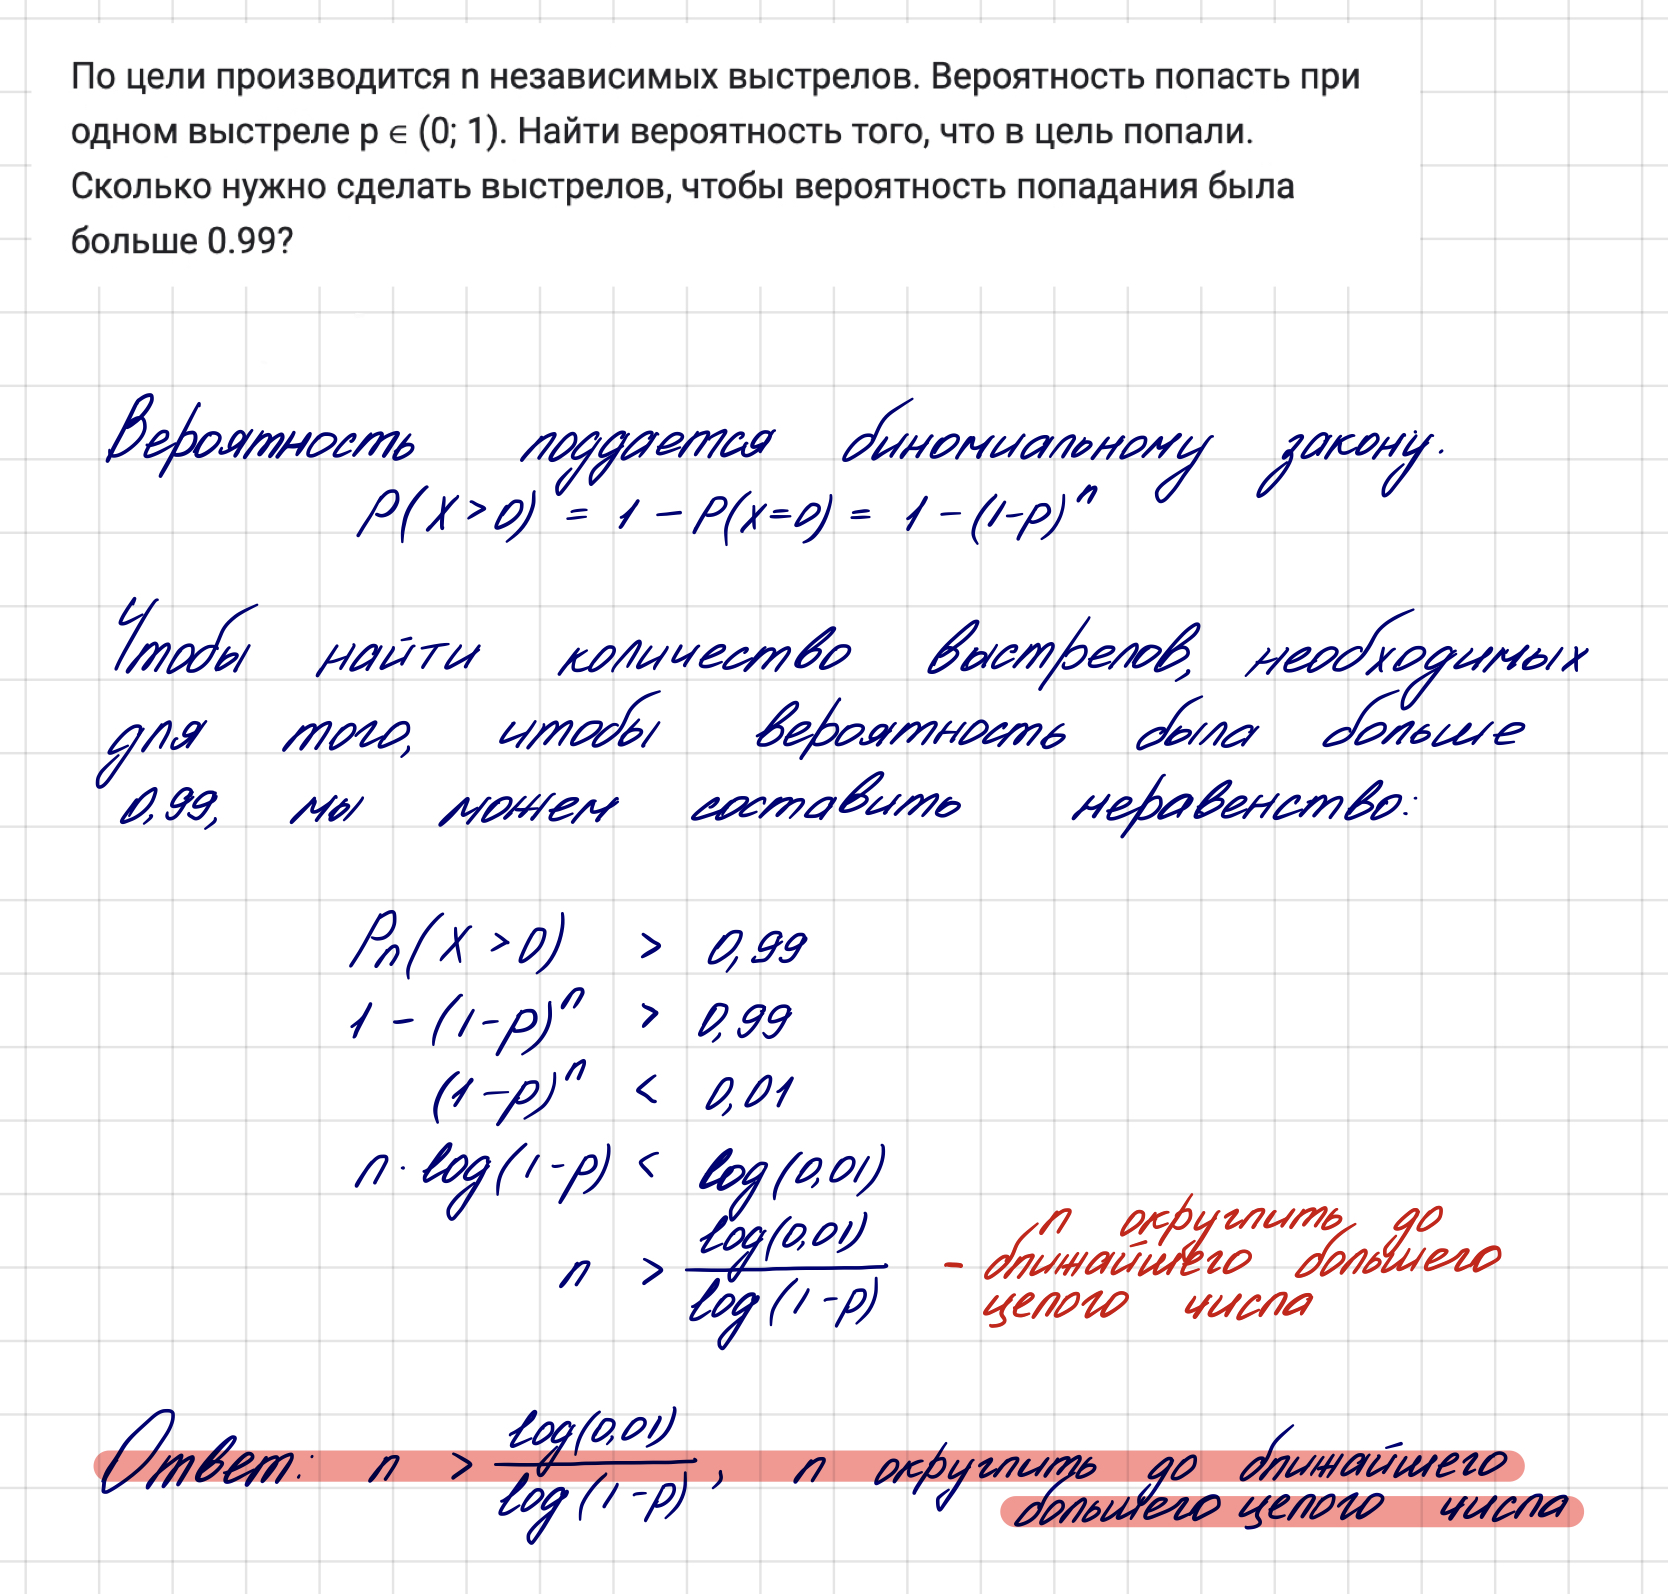 По цели производится n независимых выстрелов. Вероятность попасть при
одном выстреле p ∈ (0; 1). Найти вероятность того, что в цель попали.
Сколько нужно сделать выстрелов, чтобы вероятность попадания была
больше 0.99?
Вероятность поддается биномиальному закону.
P(X>0) = 1 - P(x=0) = 1 - (1-p)^n
Чтобы найти количество выстрелов, необходимых
для того, чтобы вероятность была больше
0,99, мы можем составить неравенство:
P_n(X>0) > 0,99
1 - (1-p)^n > 0,99
(1-p)^n < 0,01
n · log(1-p) < log(0,01)
n > log(0,01) / log(1-p) - n округлить до
ближайшего большего
целого числа
Ответ: n > log(0,01) / log(1-p), n округлить до ближайшего
большего целого числа